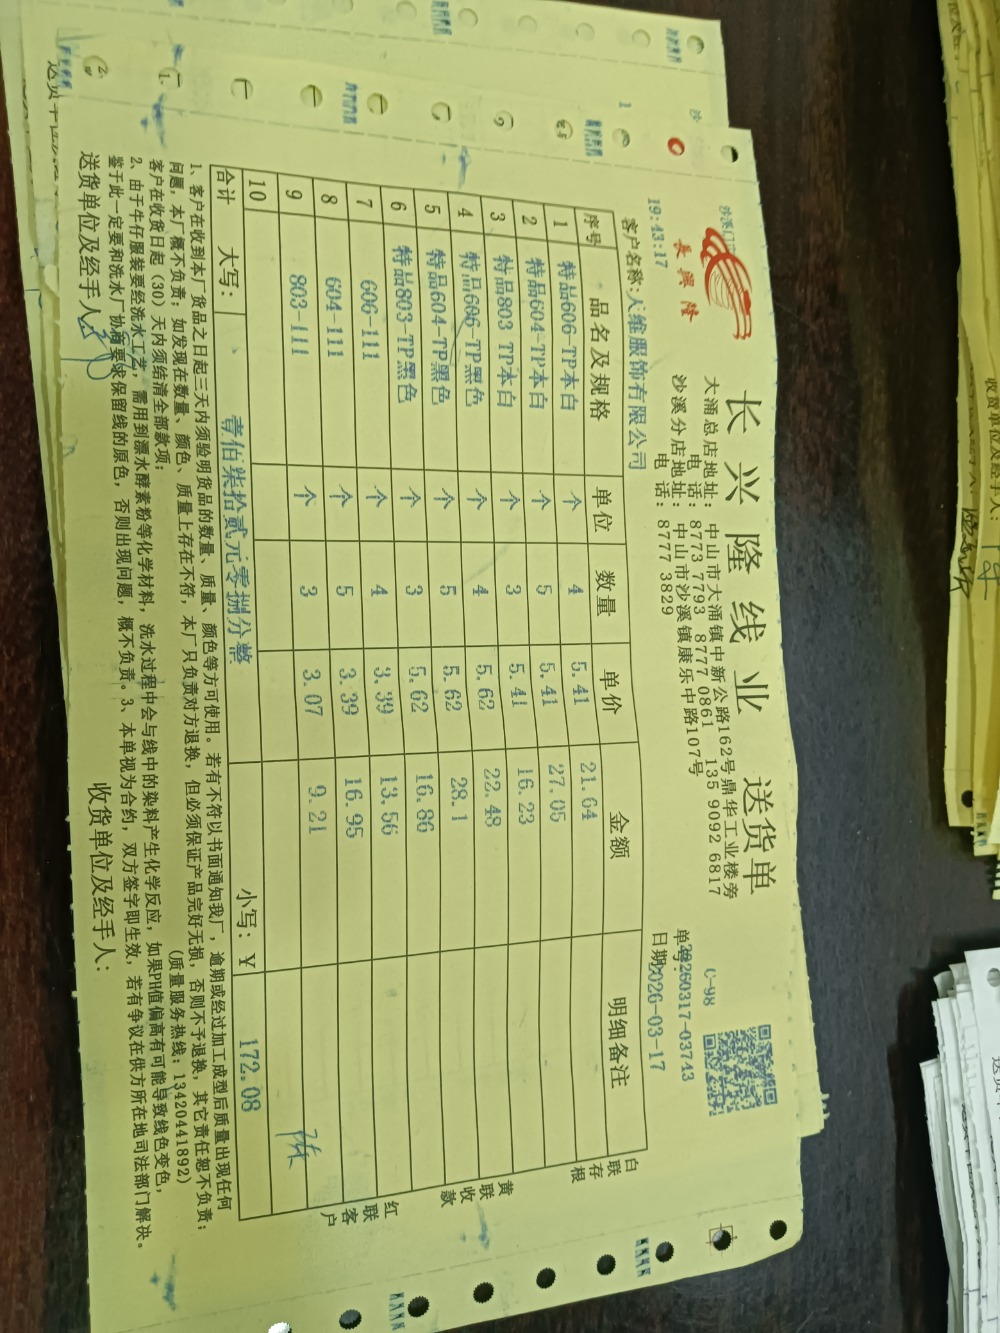 長興隆
长兴隆线业 送货单
大涌总店地址：中山市大涌镇中新公路162号鼎华工业楼旁
电话：8773 7793 8777 0861 135 9092 6817
沙溪分店地址：中山市沙溪镇康乐中路107号
电话：8777 3829
C-98
单号：20260317-03743
日期：2026-03-17
19:43:17
客户名称:天维服饰有限公司
序号 品名及规格 单位 数量 单价 金额 明细备注
1 特品606-TP本白 个 4 5.41 21.64
2 特品604-TP本白 个 5 5.41 27.05
3 特品803 TP本白 个 3 5.41 16.23
4 特品606-TP黑色 个 4 5.62 22.48
5 特品604-TP黑色 个 5 5.62 28.1
6 特品803-TP黑色 个 3 5.62 16.86
7 606-111 个 4 3.39 13.56
8 604-111 个 5 3.39 16.95
9 803-111 个 3 3.07 9.21
10
合计 大写： 壹佰柒拾贰元零捌分整 小写：￥ 172.08
白联存根
黄联收款
红联客户
1、客户在收到本厂货品之日起三天内须验明货品的数量、质量、颜色等方可使用。若有不符以书面通知我厂，逾期或经过加工成型后质量出现任何
问题，本厂概不负责；如发现在数量、颜色、质量上存在不符，本厂只负责对方退换，但必须保证产品完好无损，否则不予退换，其它责任恕不负责；
客户在收货日起（30）天内须结清全部款项；
(质量服务热线：13420441892)
2、由于牛仔服装要经洗水工艺，需用到漂水酵素粉等化学材料，洗水过程中会与线中的染料产生化学反应，如果PH值偏高有可能导致线色变色，
鉴于此一定要和洗水厂协商要求保留线的原色，否则出现问题，概不负责。3、本单视为合约，双方签字即生效，若有争议在供方所在地司法部门解决。
送货单位及经手人：
收货单位及经手人：